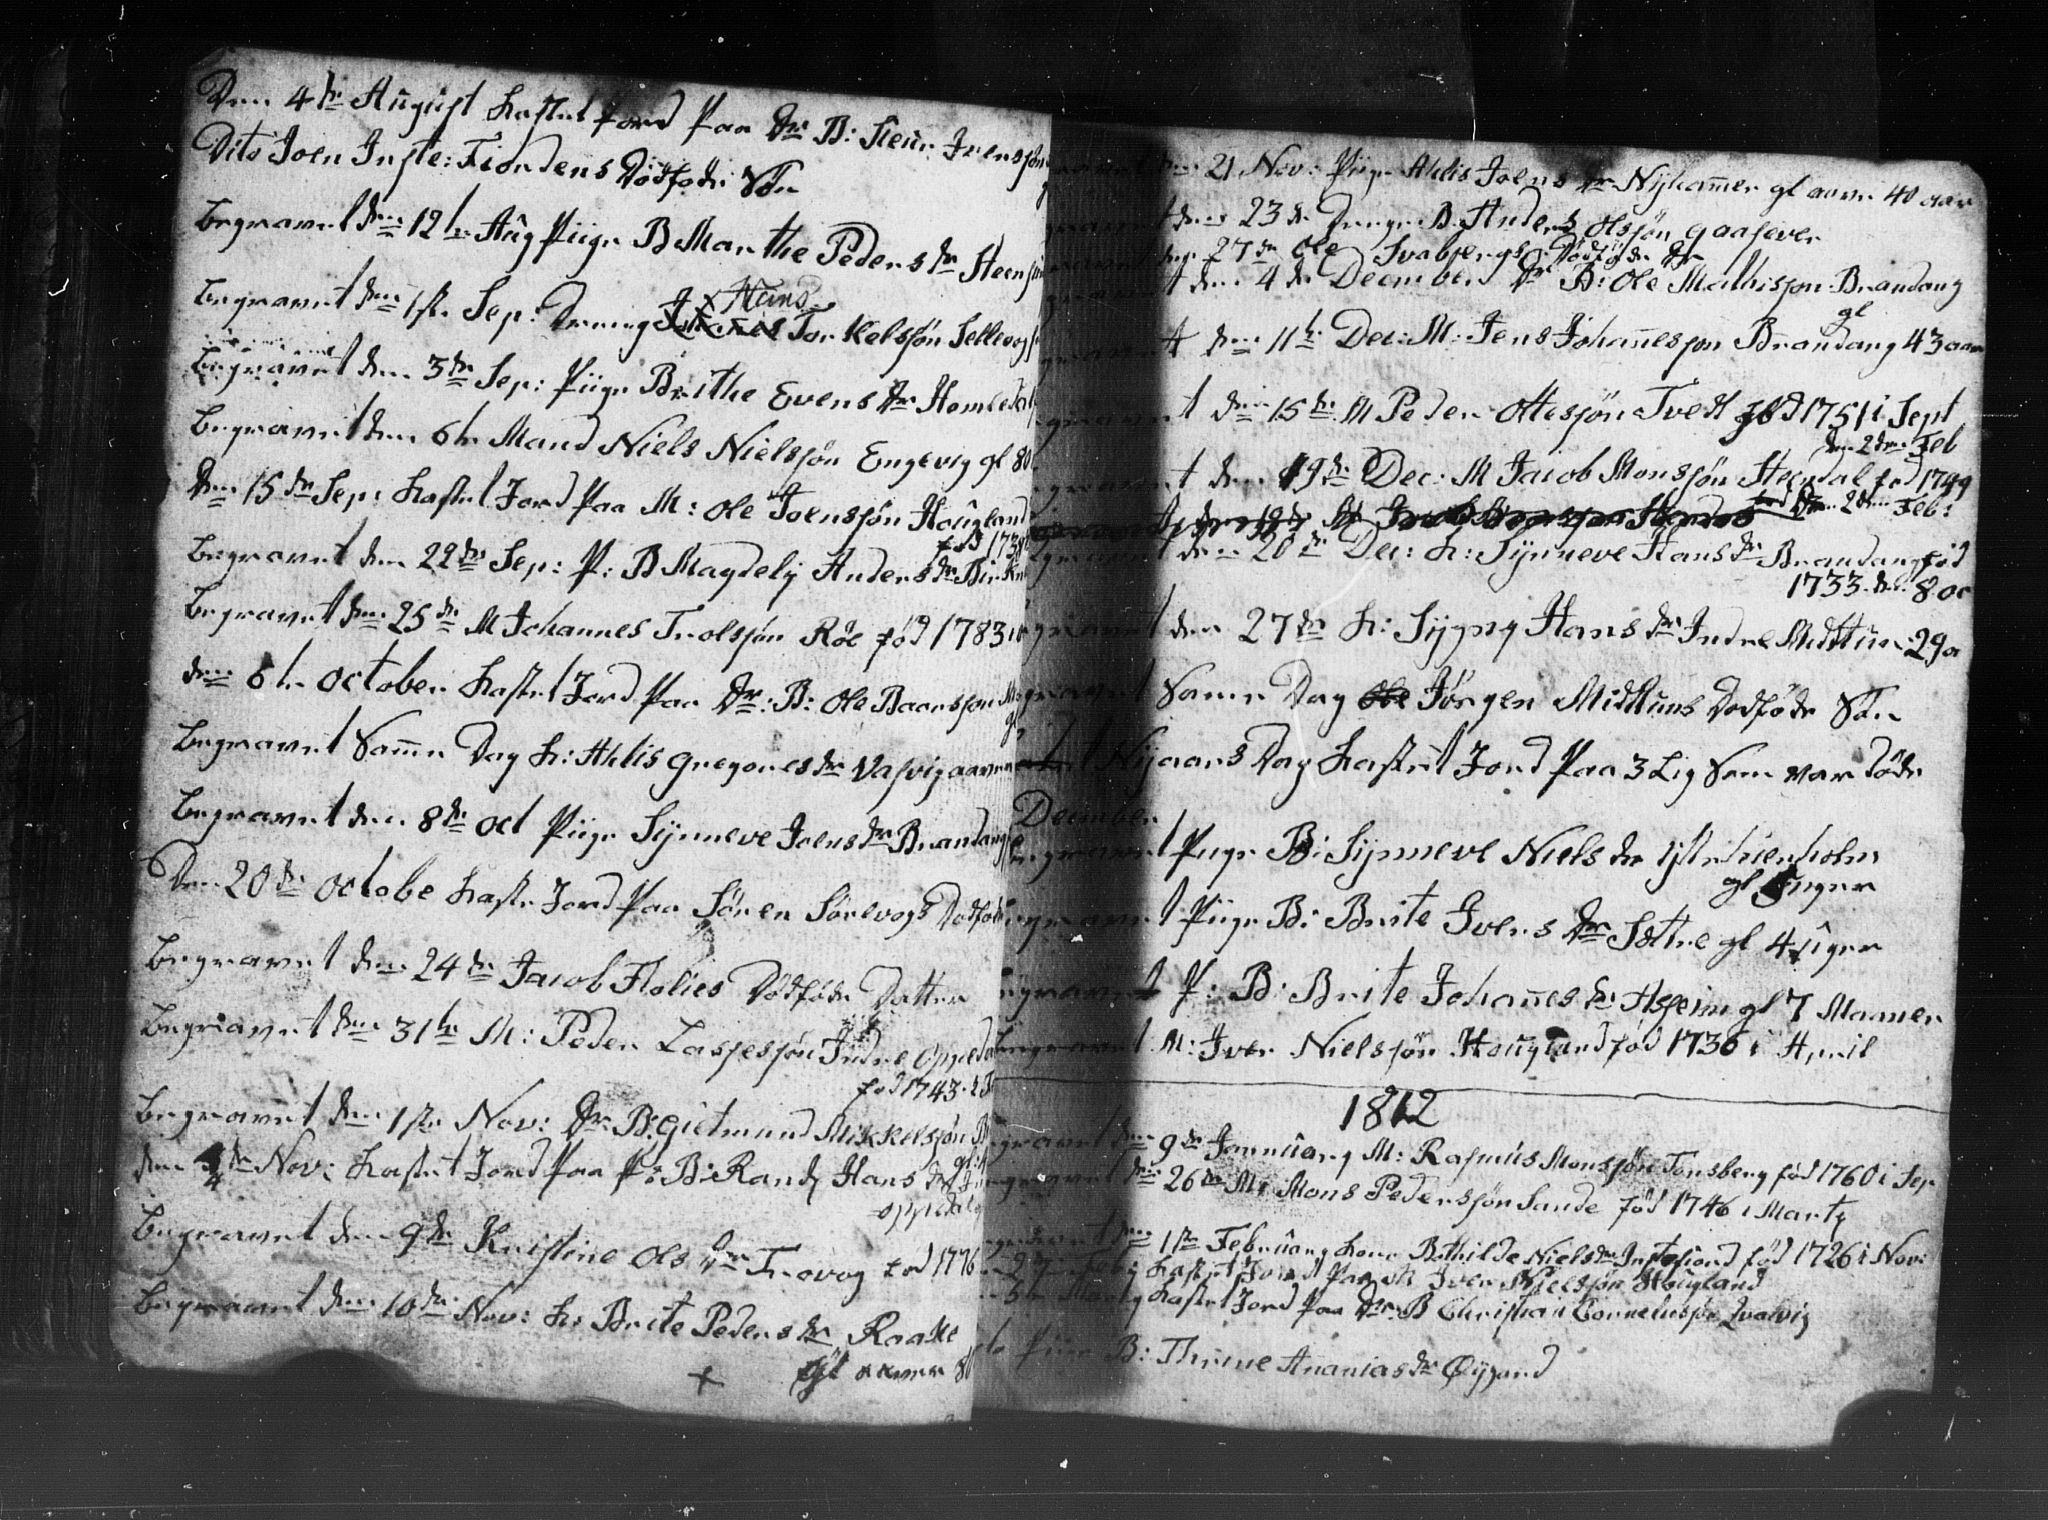 Den 4de August kastet Jord Paa Dr B: Steur Iversøn
Dito Joen Inste: Fiordens Dødføde Søn
Begravet den 12te Aug Piige B Marthe Peders dr Steen
Begravet den 1ste Sep: Dreng Hans Torkelsøn Sellevog
Begravet den 3de Sep: Piige Brithe Evens dr Homledal
Begravet den 6te Mand Niels Nielssøn Engevig gl 80
Den 15de Sep: kastet Jord Paa M: Ole Joenssøn Hougland
fød 173
Begravet den 22de Sep: P: B Magdely Anders dr Birk
Begravet den 25de M Johannes Trolssøn Röe fød 1783
den 6te October kastet Jord Paa Dr: B: Ole Baarssøn
gl
Begravet Samme Dag k: Ahlis Gregores dr Vasvig aarene
Begravet den 8de Oct Piige Synneve Joens dr Brandang
Den 20de Octobe kaste Jord Paa Søren Sørevogs Dødføde
Begravet den 24de Jacob Flolies Dødføde Datter
Begravet den 31te M: Peder Lassesøn Indre Oppedal
fød 1743
Begravet den 1ste Nov: Dr: B: Gietmund Mikkelsøn B
den 4de Nov: kastet Jord Paa P: B: Randj Hans dr
Oppedal
Begravet den 9de Kristine Ols dr Trovog fød 1776
Begravet den 10de Nov: k: Brite Peders dr Raake
gl aarene 80
den 21 Nov: Piige Ahlis Joens dr Nyhamer gl aarene 40 aar
den 23de Drenge B: Anders Olsøn Gaasever
den 27de Ole Svabergs Dødføde Dr
den 4de December Dr B: Ole Mathisson Brandang
gl
den 11te Dec: M: Jens Johanesson Brandang 43 aar
den 15de M Peder Ottesøn Tvedt gbd 1751 i Sept
den 2den Feb
den 19de Dec: M Jacob Monssøn Steendal fød 1749
den 2den Feb:
den 20de Dec: k: Synneve Hans dr Brandang fød
1733 den 8 oc
den 27de k: Sygny Hans dr Indre Midttun 29 a
Samme Dag Jörgen Midttuns Dødføde Søn
Nyaars Dag kastet Jord Paa 3 Lig Som var døde
December
Begravet Piige B: Synneve Niels dr Ystehienholm
gl uger
Begravet Piige B: Brite Ivers dr Sætre gl 4 uger
Begravet P: B: Brite Johanes dr Aspeim gl 7 Maaner
Begravet M: Iver Nielssøn Hougland fød 1736 i April
1812
Begravet den 9de Jannuary M: Rasmus Monssøn Tonsberg fød 1760 i Sep
Begravet den 26de M: Mons Pederssøn Sande fød 1746 i Marty
Begravet den 1ste February kone Bothilde Niels dr Instefiord fød 1726 i Nov:
kastet Jord Paa M Iver Nielssøn Hougland
Marty kastet Jord Paa Dr: B Christian Corneliussøn Qvalvig
B: Thrine Ananias dr Øygard